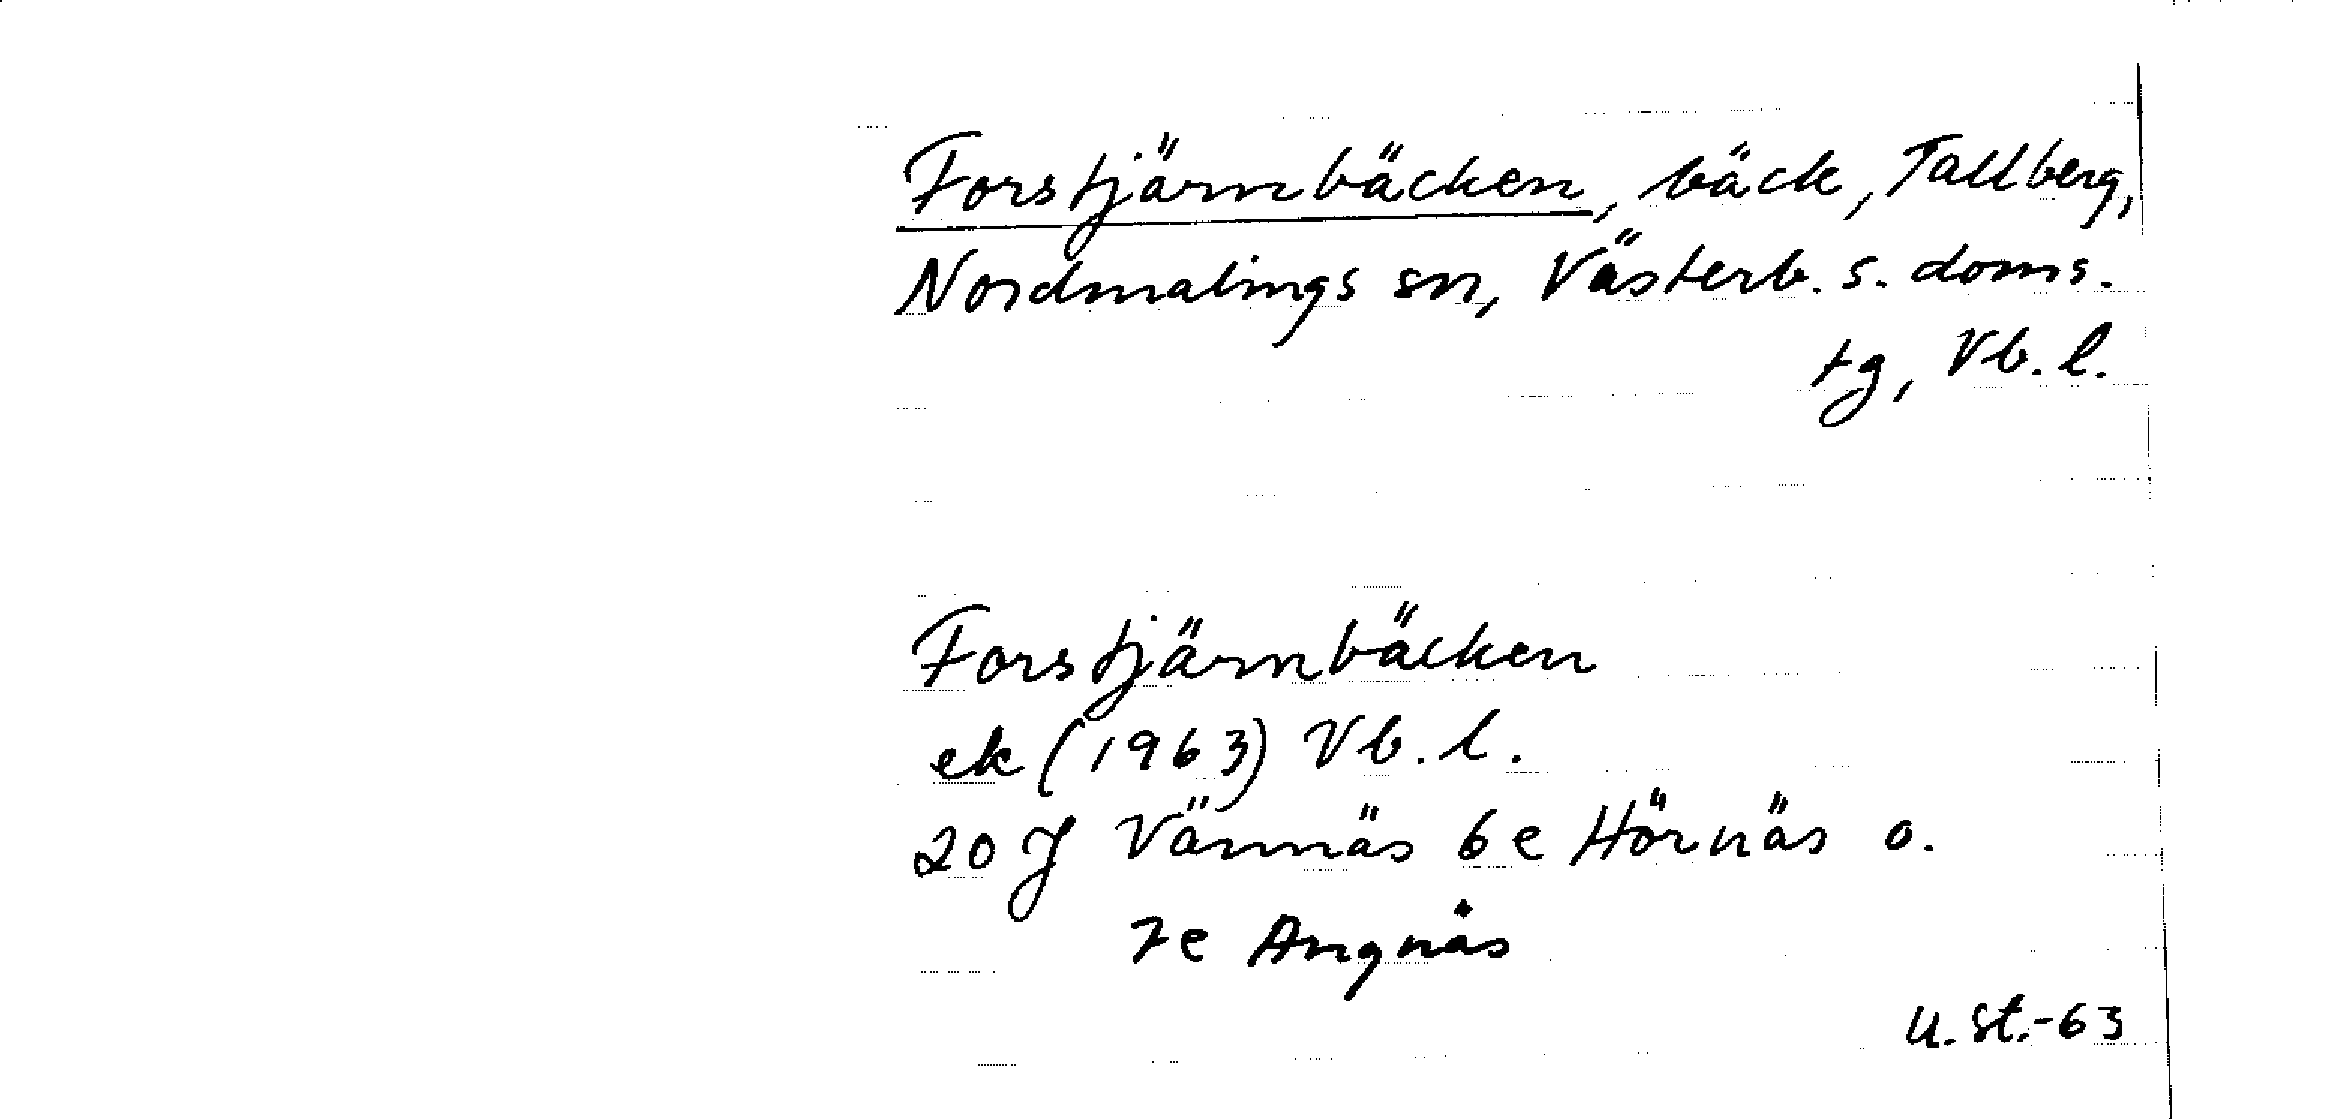 Forstjärnbäcken, bäck, Tallberg,
Nordmalings sn, Västerb. s. doms.
tg, Vb. l.
Forstjärnbäcken
ek (1963) Vb. l.
20 J Vännäs 6e Hörnäs o.
7e Ångnäs
U. St. -63